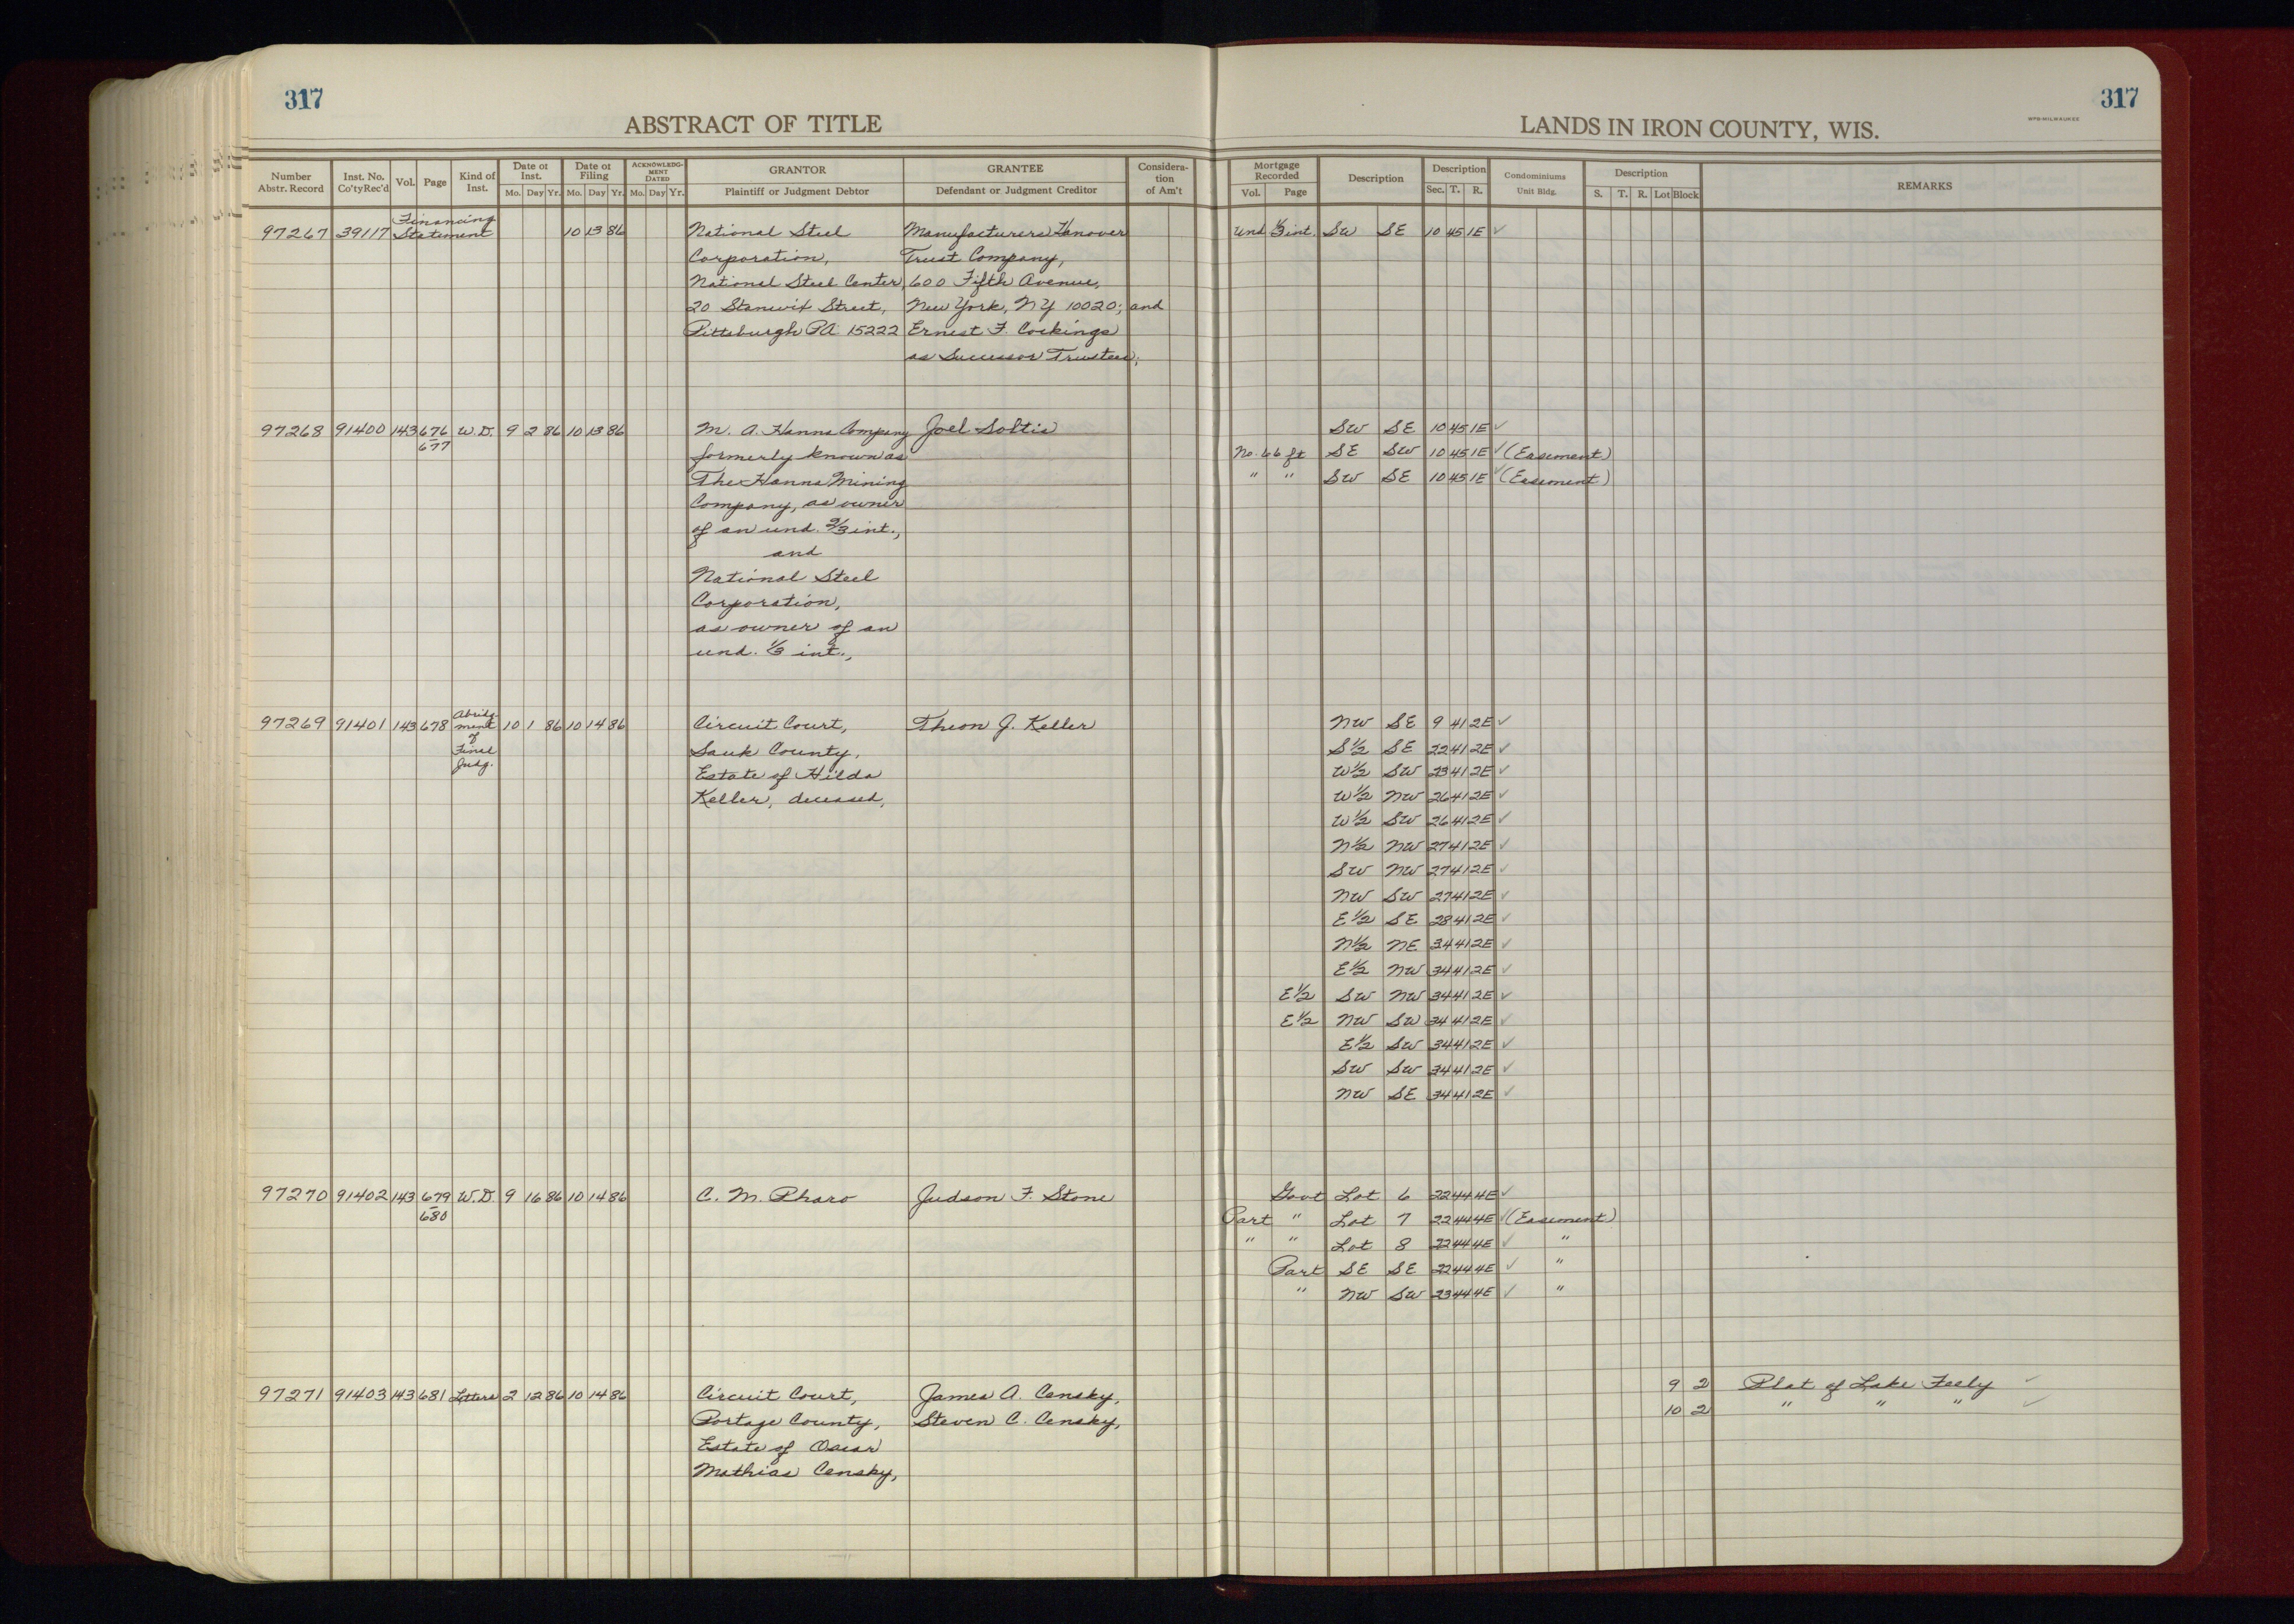 317
317
ABSTRACT OF TITLE
LANDS IN IRON COUNTY, WIS.
WPB-MILWAUKEE
Number Abstr. Record | Inst. No. Co'ty Rec'd | Vol. | Page | Kind of Inst. | Date of Inst. Mo. Day Yr. | Date of Filing Mo. Day Yr. | ACKNOWLEDGMENT DATED Mo. Day Yr. | GRANTOR Plaintiff or Judgment Debtor | GRANTEE Defendant or Judgment Creditor | Consideration of Am't | Mortgage Recorded Vol. Page | Description | Description Sec. T. R. | Condominiums Unit Bldg. | Description S. T. R. Lot Block | REMARKS
97267 39117 Financing Statement 10 13 86 National Steel Manufacturers Hanover Und 1/3 int. SW SE 10 45 1E ✓
Corporation, Trust Company,
National Steel Center, 600 Fifth Avenue,
20 Stanwix Street, New York, NY 10020; and
Pittsburgh PA 15222 Ernest F. Cockings
as Successor Trustee,
97268 91400 143 676-677 W.D. 9 2 86 10 13 86 M. A. Hanna Company Joel Soltis SW SE 10 45 1E ✓
formerly known as No. 66 ft SE SW 10 45 1E ✓ (Easement)
The Hanna Mining " " SW SE 10 45 1E ✓ (Easement)
Company, as owner
of an und. 2/3 int.,
and
National Steel
Corporation,
as owner of an
und. 1/3 int.,
97269 91401 143 678 Abridgment of Final Judg. 10 1 86 10 14 86 Circuit Court, Theon J. Keller NW SE 9 41 2E ✓
Sauk County, S1/2 SE 22 41 2E ✓
Estate of Hilda W1/2 SW 23 41 2E ✓
Keller, deceased, W1/2 NW 26 41 2E ✓
W1/2 SW 26 41 2E ✓
N1/2 NW 27 41 2E ✓
SW NW 27 41 2E ✓
NW SW 27 41 2E ✓
E1/2 SE 28 41 2E ✓
N1/2 NE 34 41 2E ✓
E1/2 NW 34 41 2E ✓
E1/2 SW NW 34 41 2E ✓
E1/2 NW SW 34 41 2E ✓
E1/2 SW 34 41 2E ✓
SW SW 34 41 2E ✓
NW SE 34 41 2E ✓
97270 91402 143 679-680 W.D. 9 16 86 10 14 86 C. M. Pharo Judson F. Stone Govt Lot 6 22 44 4E ✓
Part " Lot 7 22 44 4E ✓ (Easement)
" " Lot 8 22 44 4E ✓ "
Part SE SE 22 44 4E ✓ "
" NW SW 23 44 4E ✓ "
97271 91403 143 681 Letters 2 12 86 10 14 86 Circuit Court, James A. Censky, 9 2 Plat of Lake Feely ✓
Portage County, Steven C. Censky, 10 2 " " " ✓
Estate of Oscar
Mathias Censky,